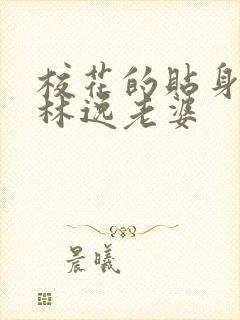 校花的贴身
林逸老婆
晨曦